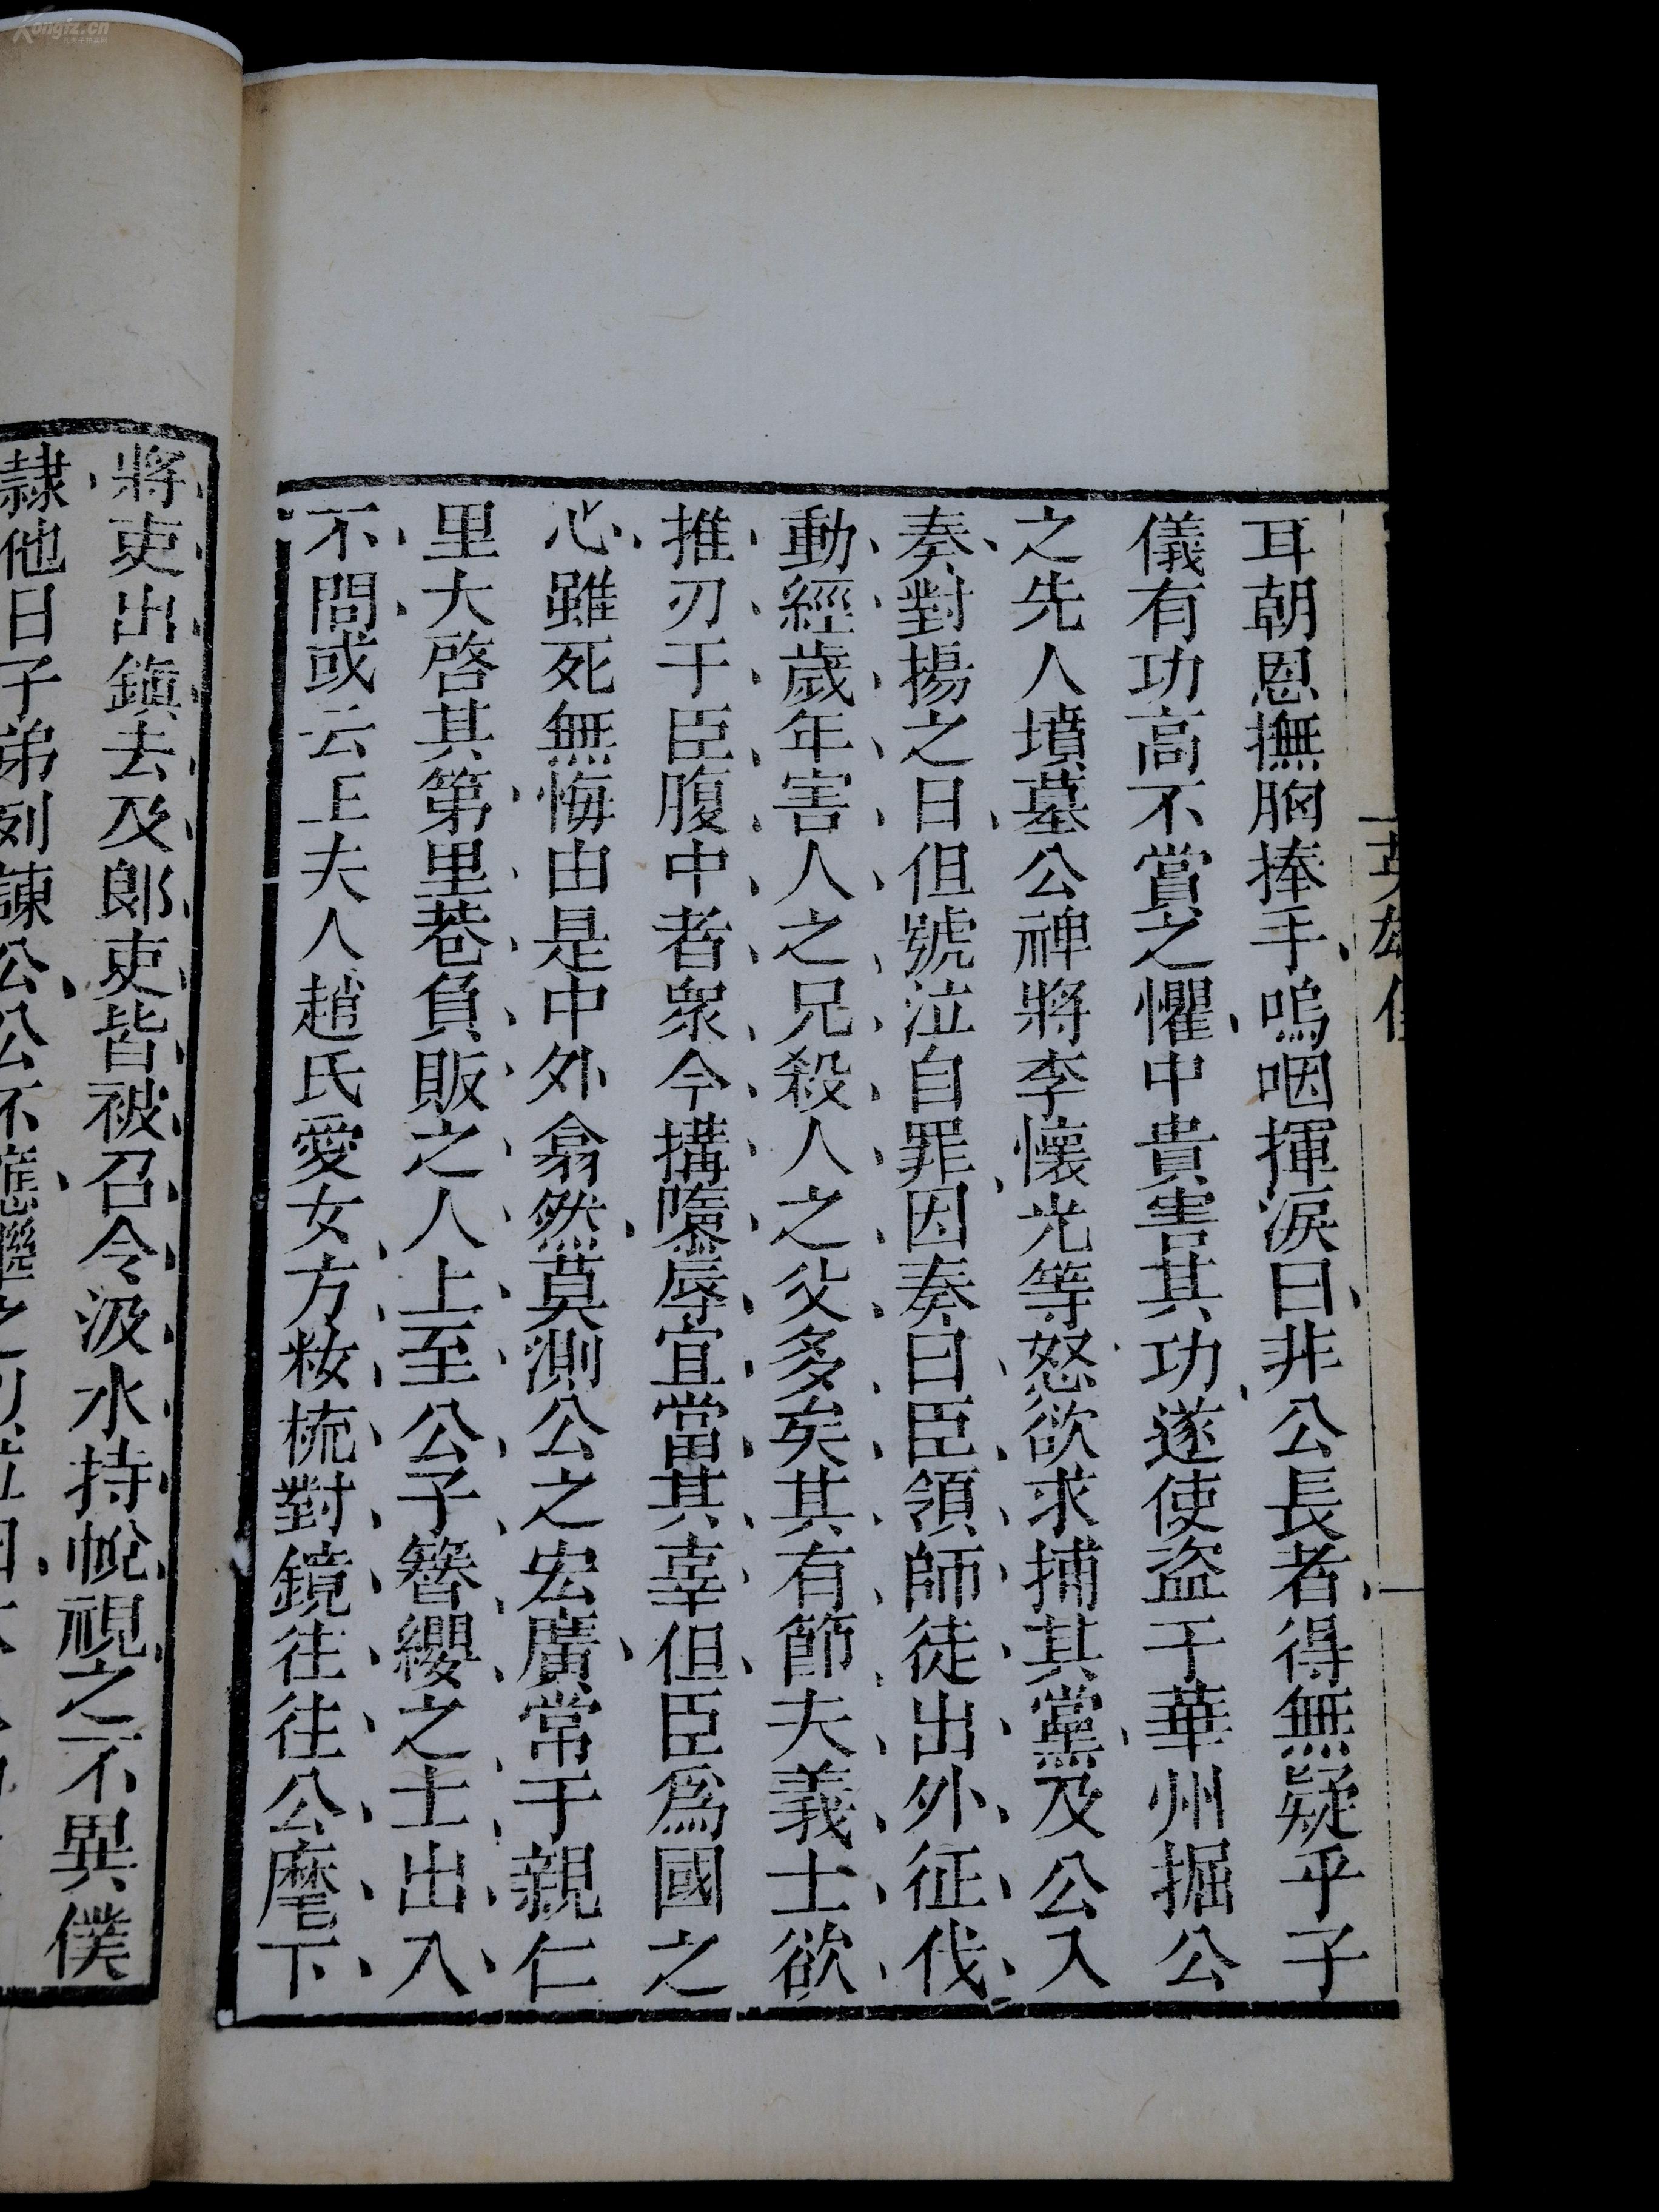 耳朝恩撫胸捧手嗚咽揮淚曰非公長者得無疑乎子
儀有功高不賞之懼中貴害其功遂使盗于華州掘公
之先人墳墓公裨將李懷光等怒欲求捕其黨及公入
奏對揚之日但號泣自罪因奏曰臣領師徒出外征伐
動經歲年害人之兄殺人之父多矣其有節夫義士欲
推刃于臣腹中者衆今搆隳辱宜當其辜但臣爲國之
心雖死無悔由是中外翕然莫測公之宏廣常于親仁
里大啓其第里巷負販之人上至公子簪纓之士出入
不問或云王夫人趙氏愛女方妝梳對鏡往往公麾下
將吏出鎮去及郎吏皆被召令汲水持帨視之不異僕
隸他日子弟列諫公公不應繼之
英雄
Kongfz.cn